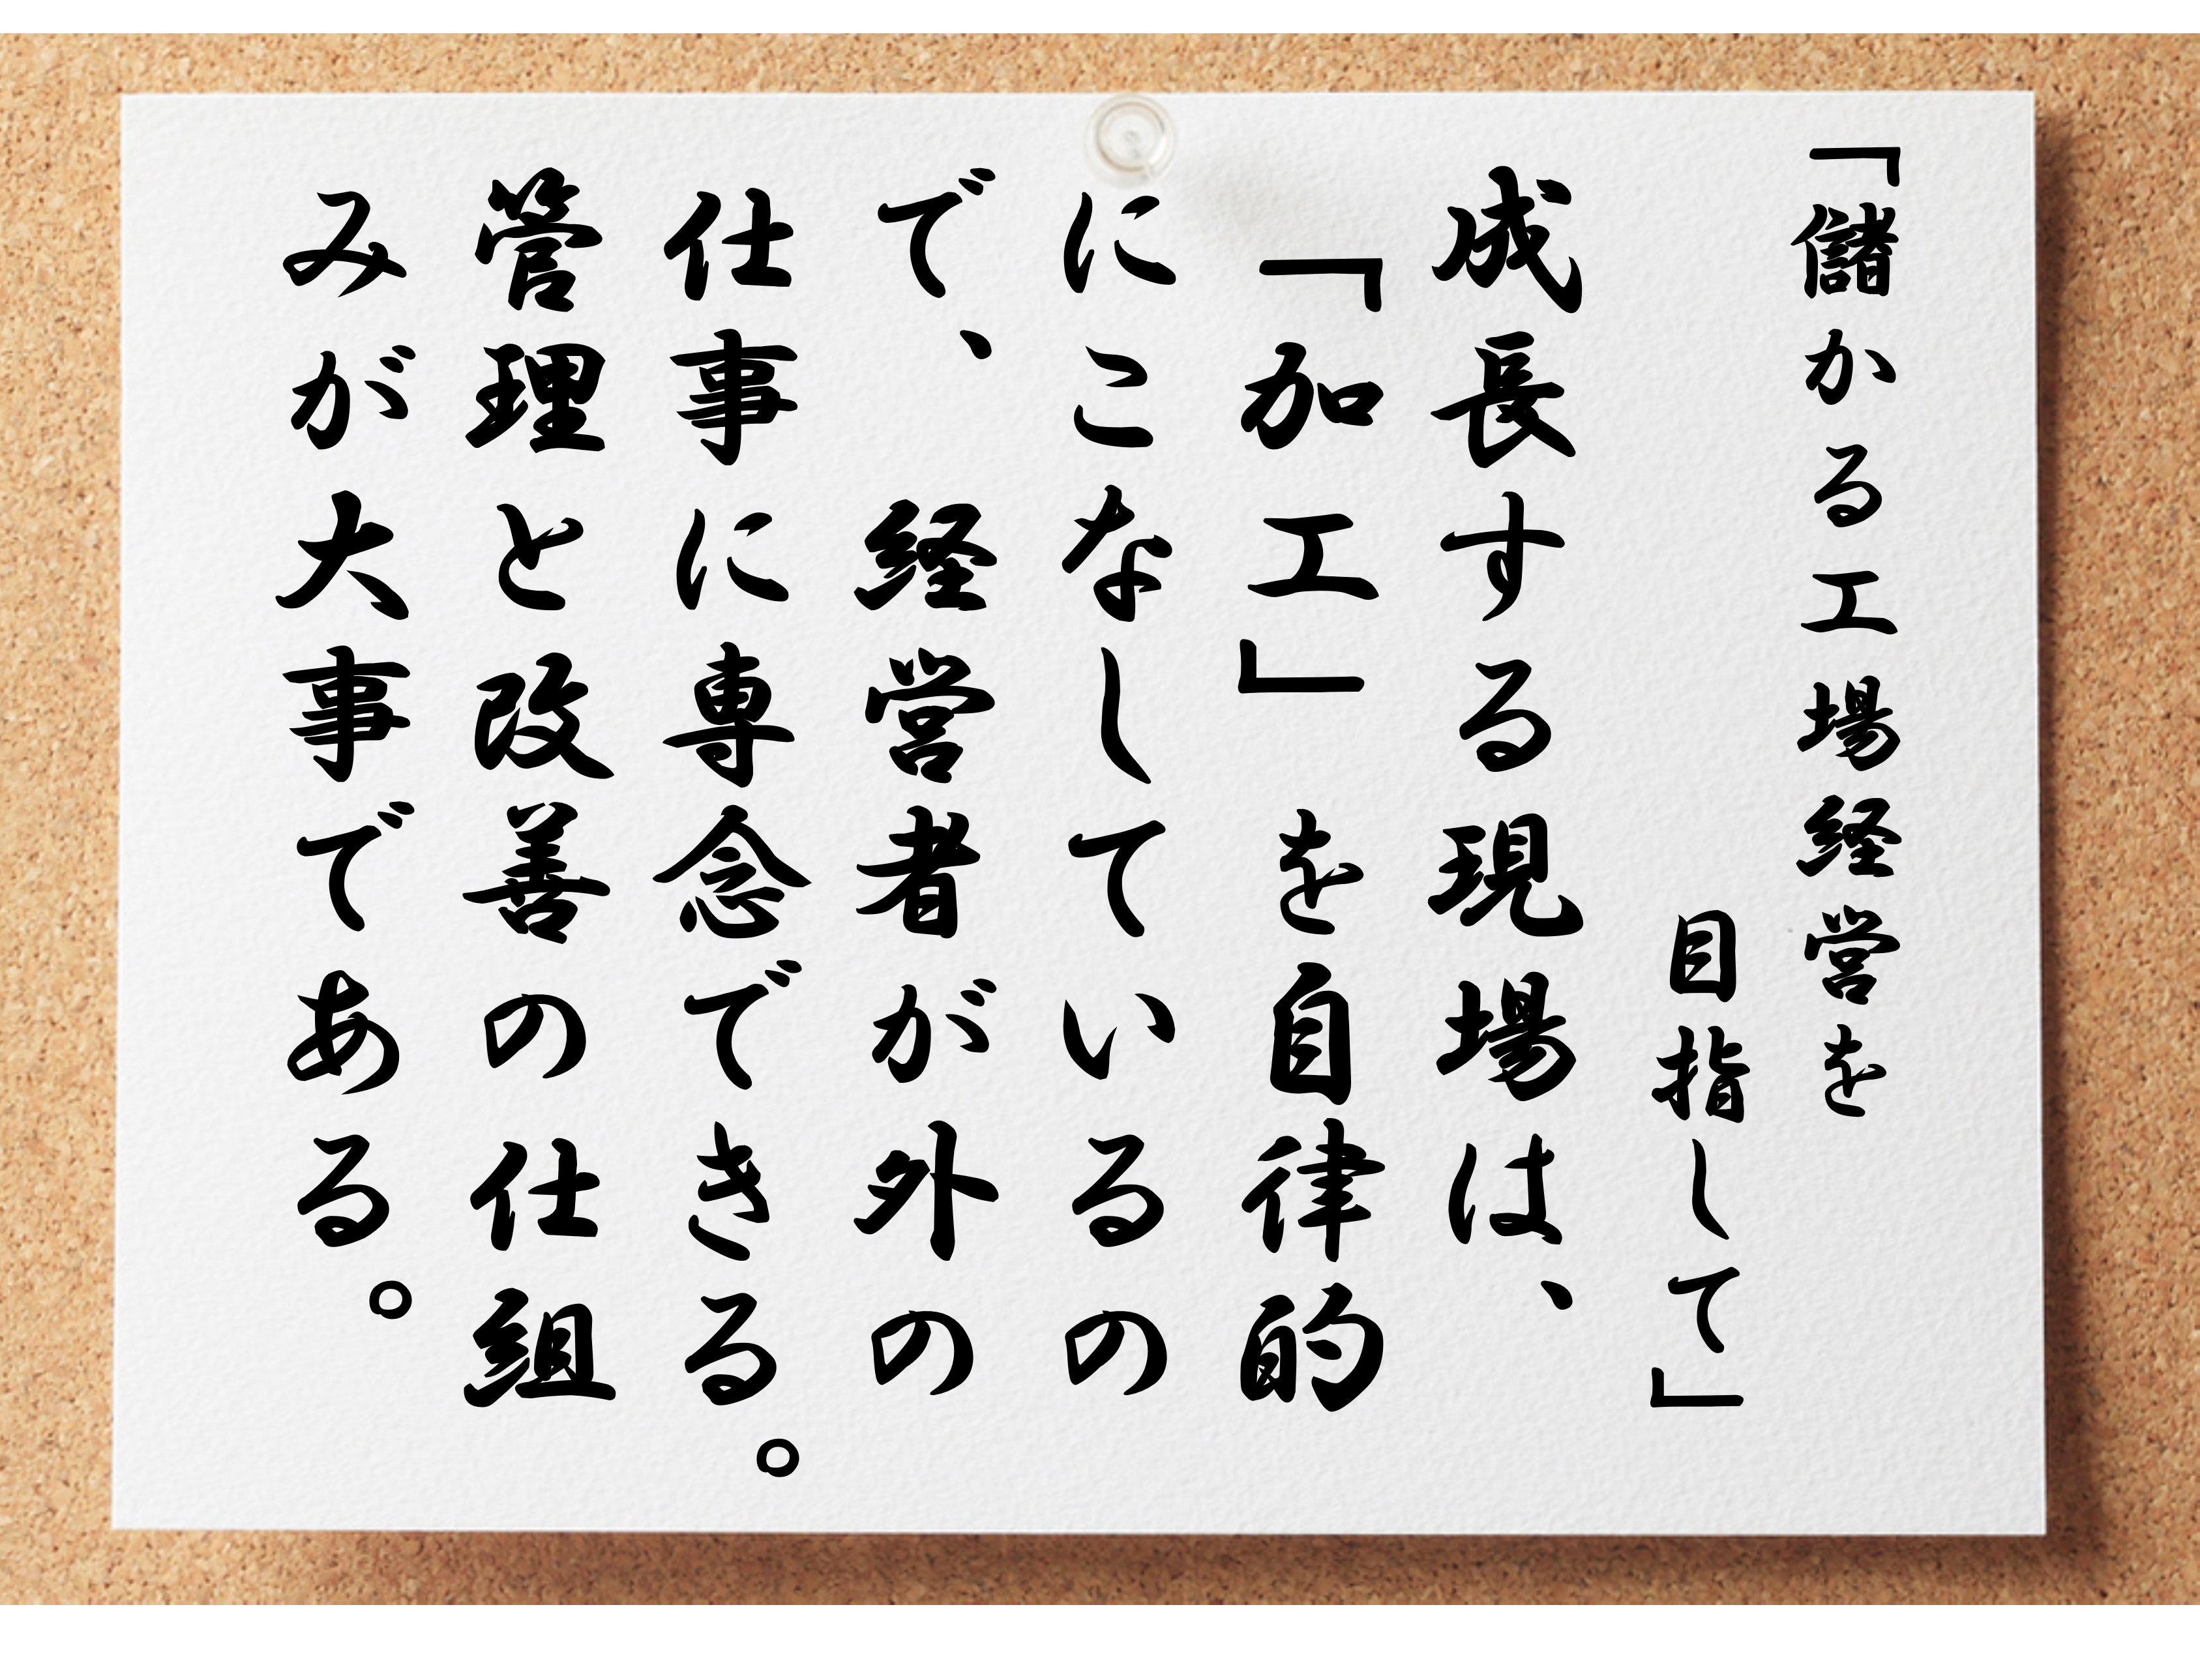 「儲かる工場経営を
目指して」
成長する現場は、
「加工」を自律的
にこなしているの
で、経営者が外の
仕事に専念できる。
管理と改善の仕組
みが大事である。